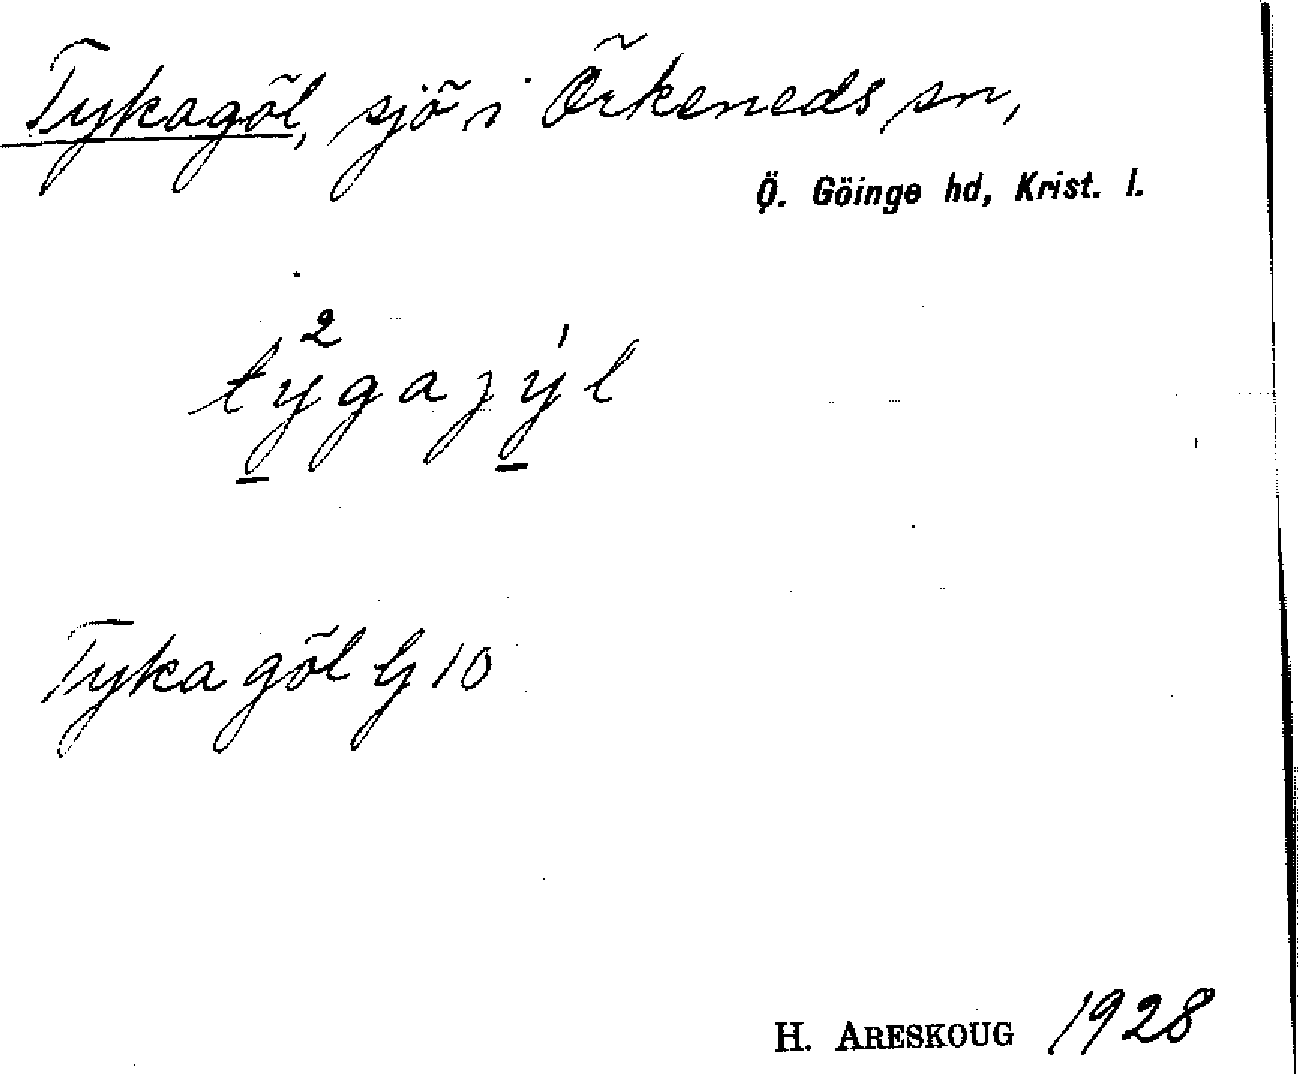 Tykagöl, sjö i Örkeneds sn,
Ö. Göinge hd, Krist. l.
tỳ²gajýl
Tyka göl G 10
H. ARESKOUG 1928